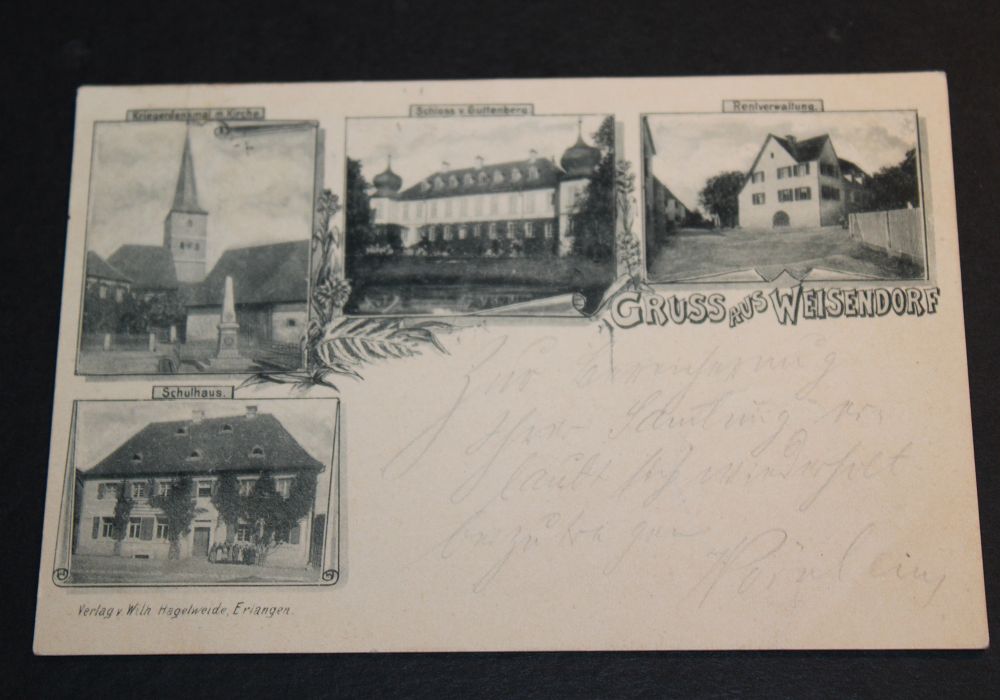 Kriegerdenkmal m. Kirche.
Schloss v. Guttenberg
Rentverwaltung.
GRUSS AUS WEISENDORF
Schulhaus.
Zur Bereicherung
Ihrer Samlung er-
laubt sich wiederholt
beizutragen
Verlag v. Wilh. Hagelweide, Erlangen.